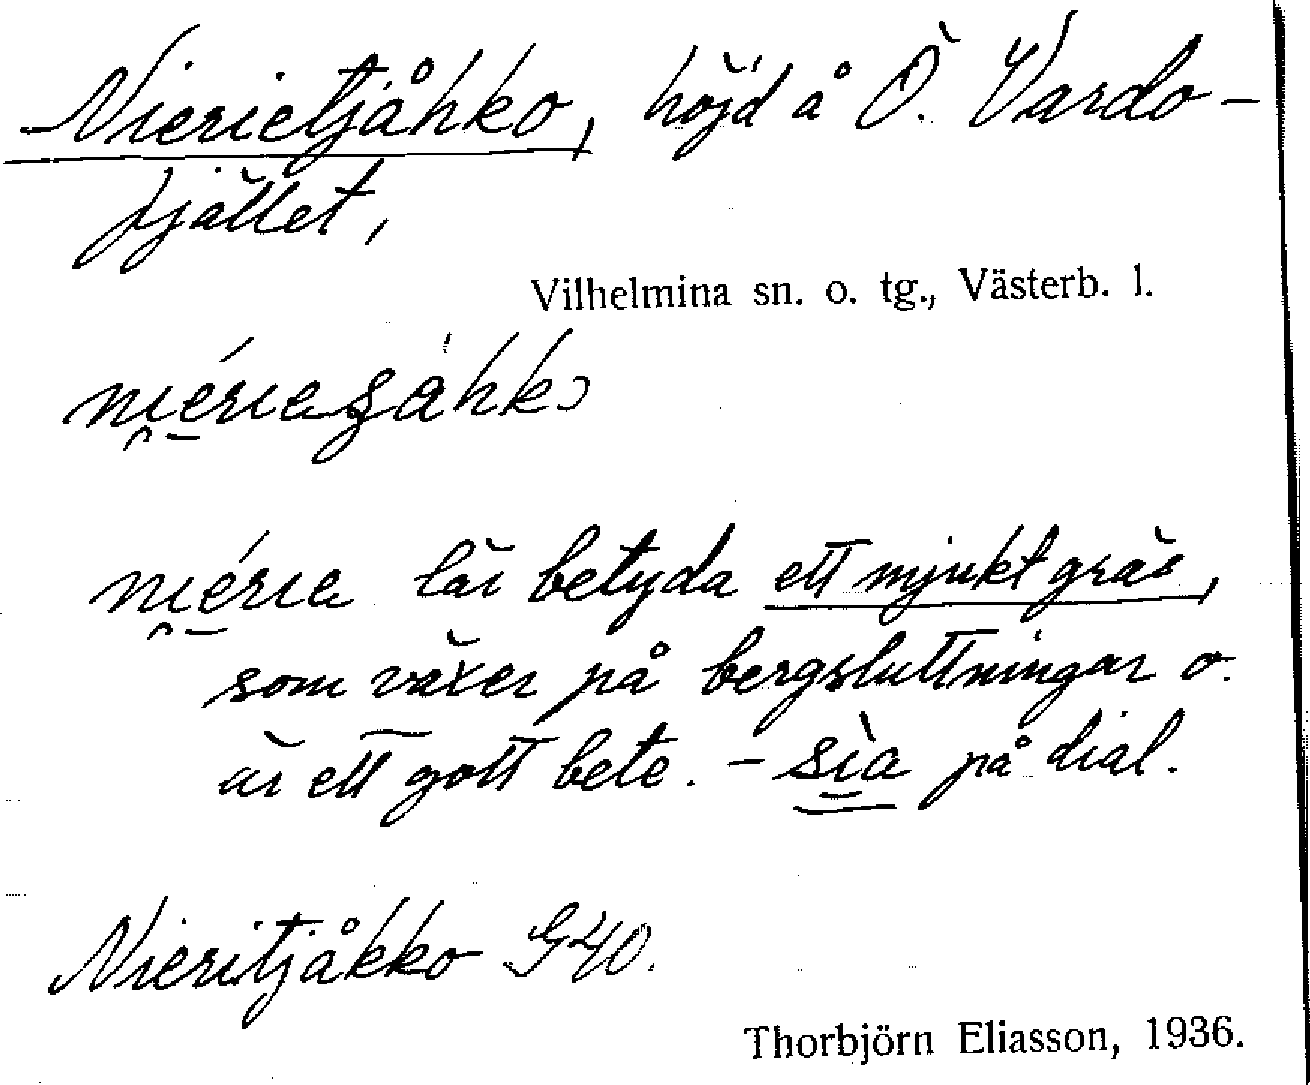 Nierietjåhko, höjd å Ö. Vardo-
fjället,
Vilhelmina sn. o. tg., Västerb. l.
lär betyda ett mjukt gräs,
som växer på bergsluttningar o.
är ett gott bete. – sìa på dial.
Nieritjåkko G40.
Thorbjörn Eliasson, 1936.